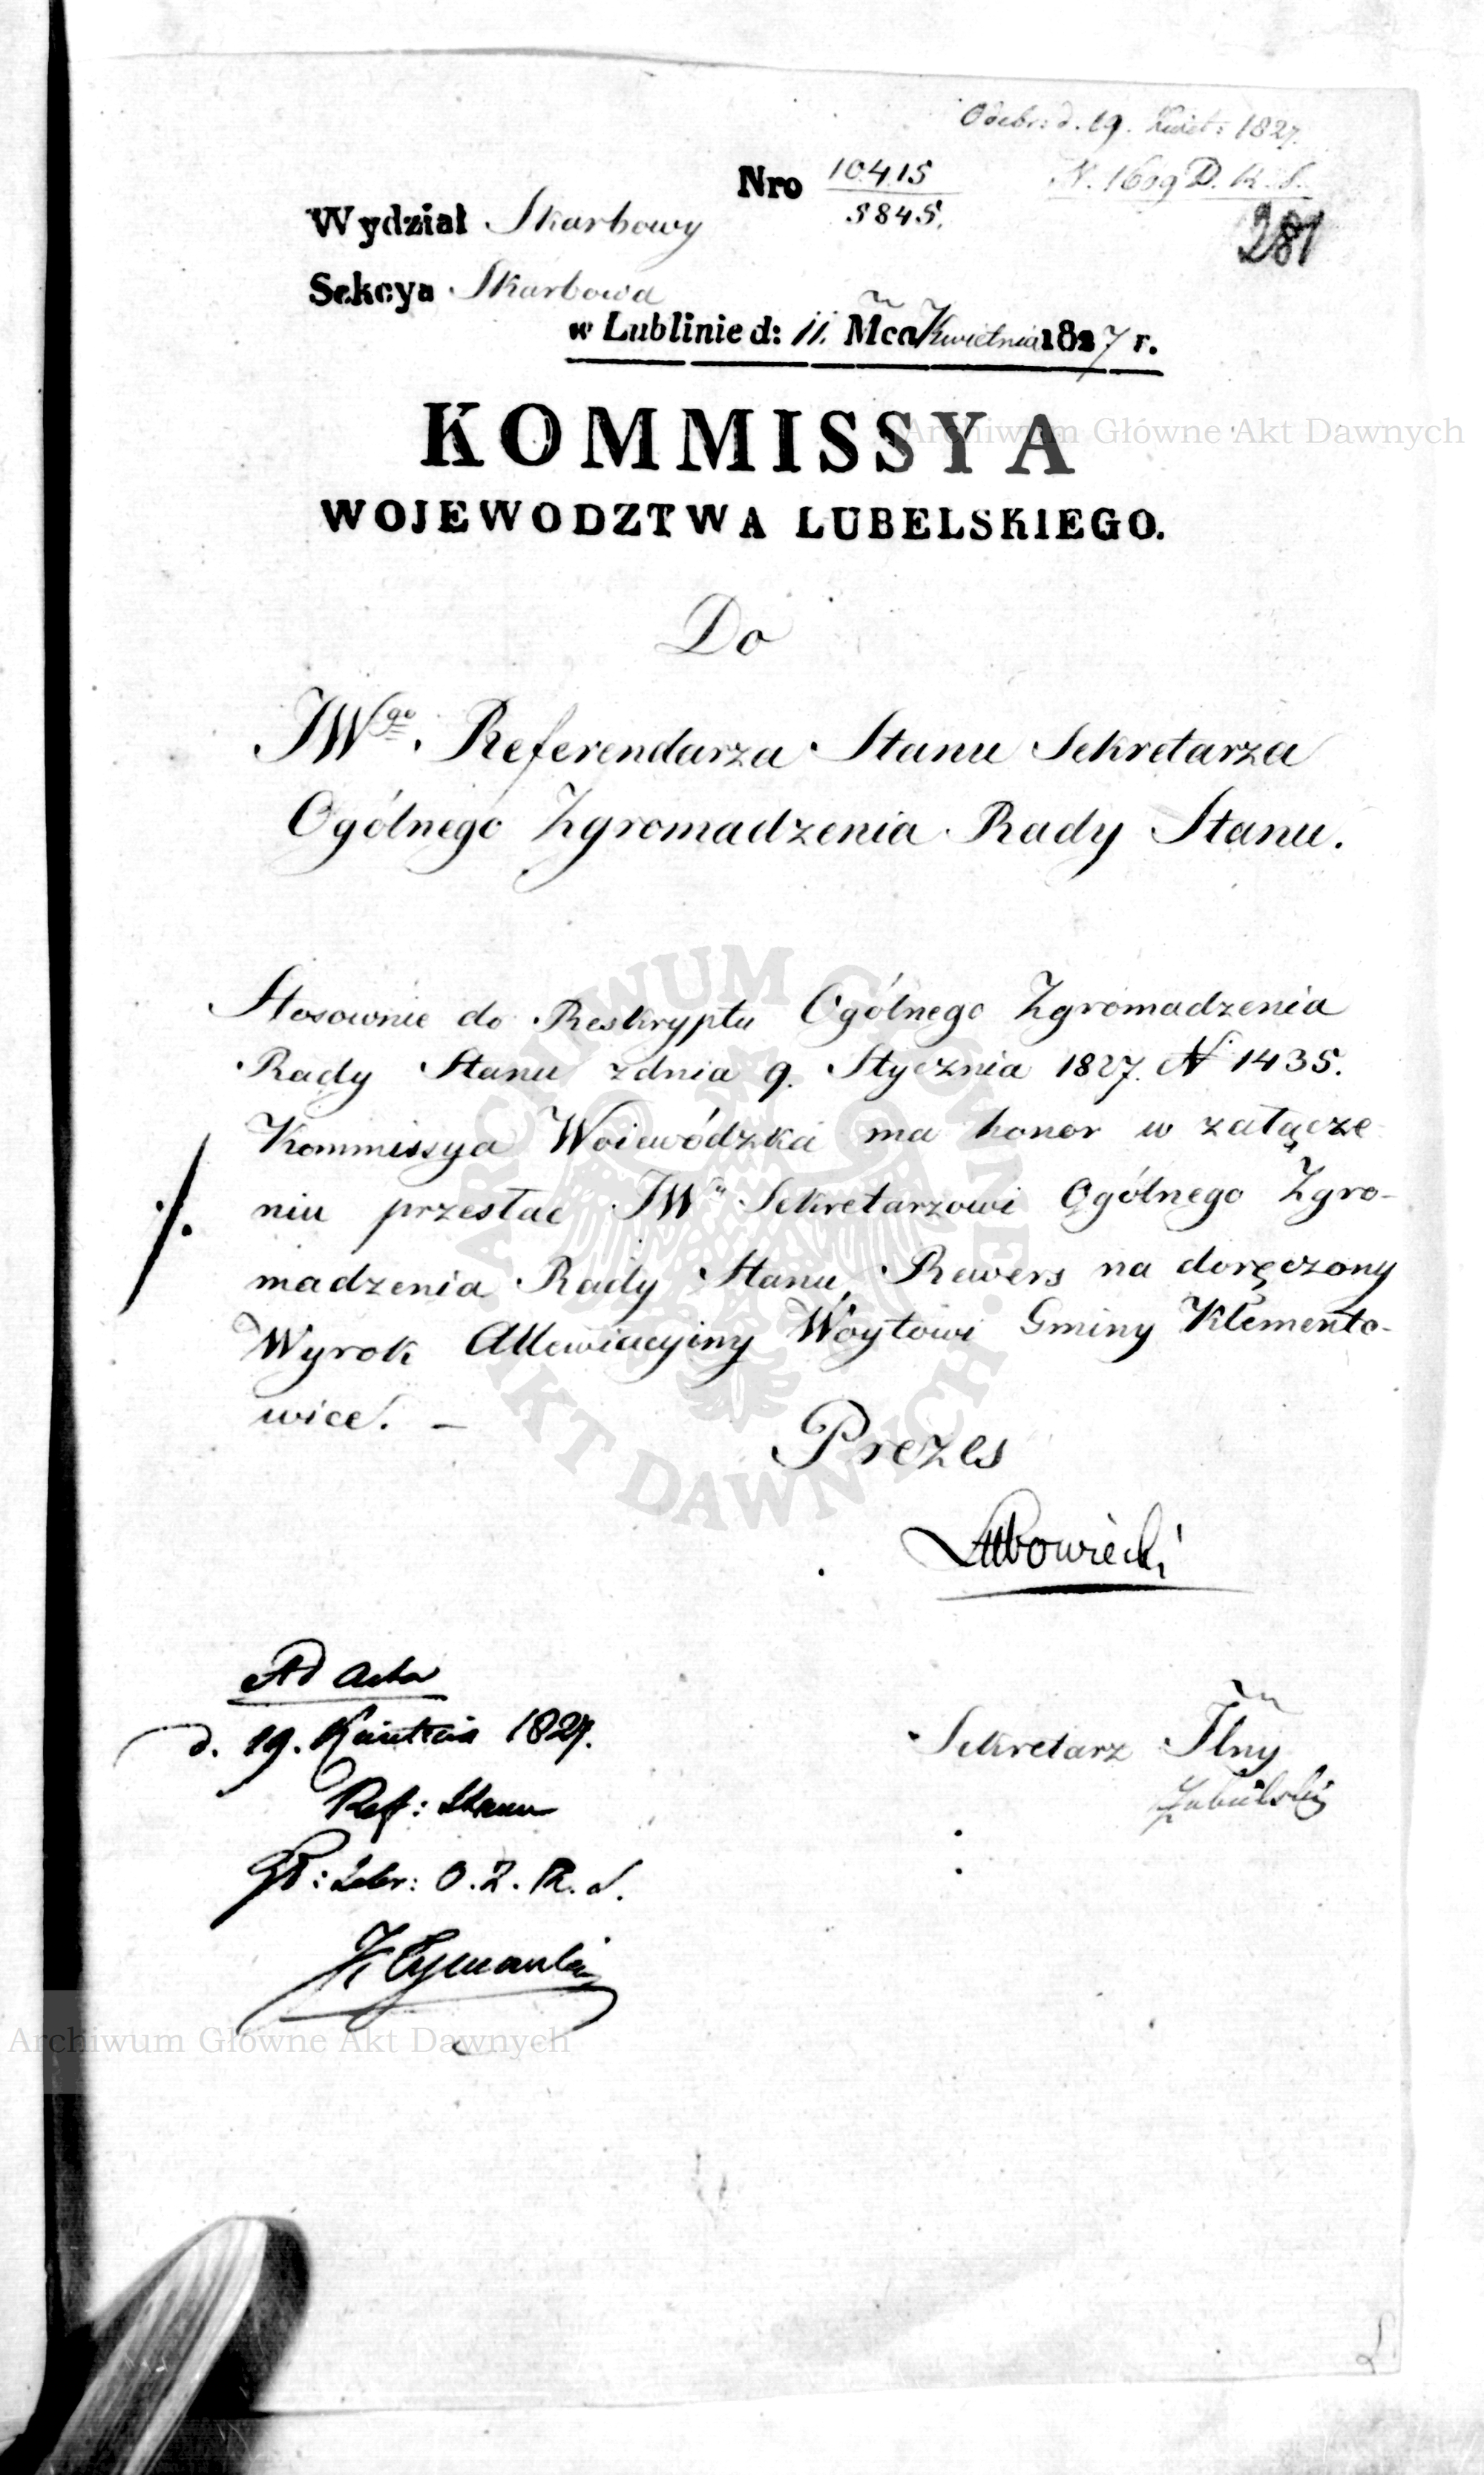 Odebr: d. 19. Kwiet: 1827.
N. 1609 D. K. S.
281
Nro 10415
5845.
Wydział Skarbowy
Sekcya Skarbowa
w Lublinie d: 11. Mca Kwietnia 1827 r.
KOMMISSYA
WOJEWODZTWA LUBELSKIEGO.
Do
JWgo. Referendarza Stanu Sekretarza
Ogólnego Zgromadzenia Rady Stanu.
Stosownie do Reskryptu Ogólnego Zgromadzenia
Rady Stanu z dnia 9. Stycznia 1827. N 1435.
Kommissya Woiewódzka ma honor w załącze
niu przesłać JWu Sekretarzowi Ogólnego Zgro-
madzenia Rady Stanu, Rewers na doręczony
Wyrok Allewiacyiny Woytowi Gminy Klemento-
wice. —
Prezes
Lubowiecki
Ad acta
d. 19. Kwietnia 1827.
Ref: Stanu
Sekr: O. Z. R. S.
Sekretarz Jlny
Archiwum Główne Akt Dawnych
Archiwum Główne Akt Dawnych
ARCHIWUM GŁÓWNE AKT DAWNYCH